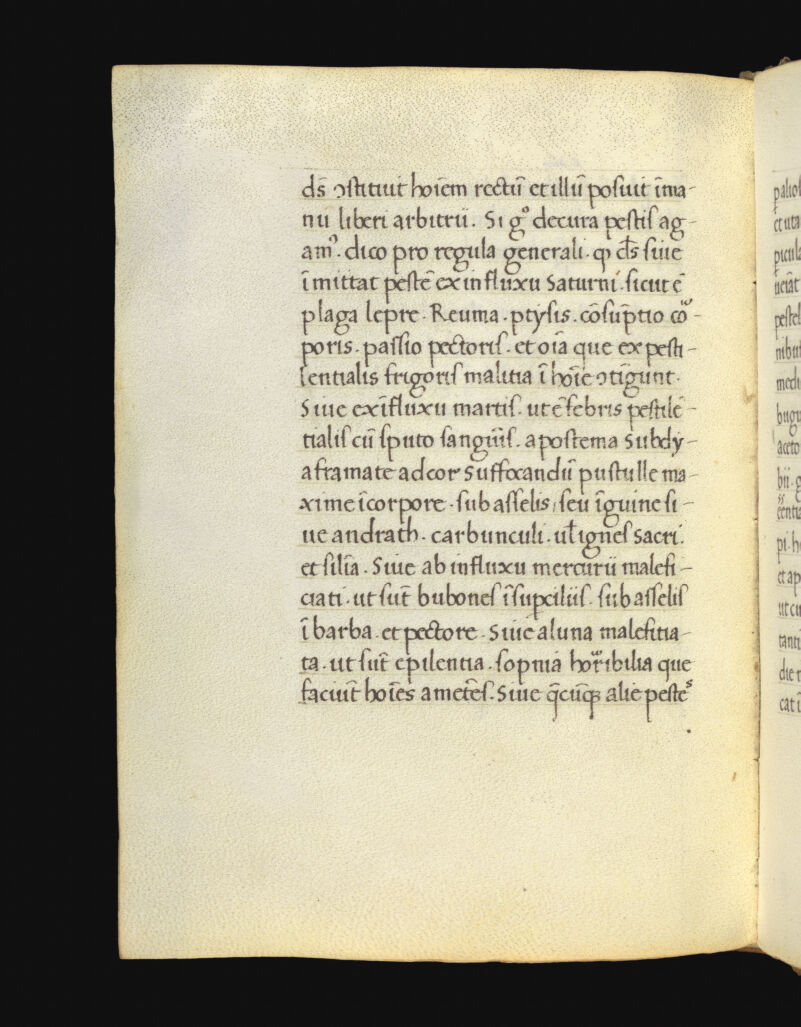 ds̄ ↄſtituit hoīem rectū et illū poſuit īma-
nu liberi arbitrii. Si gº de cura peſtiſ ag-
am⁹. dico pro regula generali. ꝙ ds̄ ſiue
īmittat peſtē ex influxu Saturni. ſicut ē
plaga lepre. Reuma. ptyſis. cōſūptio cor-
poris. paſſio pectoriſ. et oīa que ex peſti-
lentialis frigoriſ malitia ī hoīe ↄtīgunt.
Siue ex īfluxu martiſ. ut ē febris peſtilē-
tialiſ cū ſputo ſanguīſ. apoſtema Subdy-
aframate ad cor Suffocandū puſtulle ma-
xime ī corpore. ſub aſſelis, ſeu īguine ſi-
ue andrath. carbunculi. uł igneſ Sacri.
et ſilīa. Siue ab influxu mercurii malefi-
ciati. ut ſūt buboneſ ī ſupciliiſ. ſub aſſeliſ
ī barba. et pectore. Siue a luna malefitia-
ta. ut ſūt epilentia. ſopnia horribilia que
faciūt hoīes amētes. Siue q̄cūqꝫ alie peſteˢ
palioſ
et uta
picula
ueīat
peſteſ
nibuſ
medi
bugu
aceto
bii. g
ſentia
pi. h
et ap
ut cu
tanti
die n
cat ī